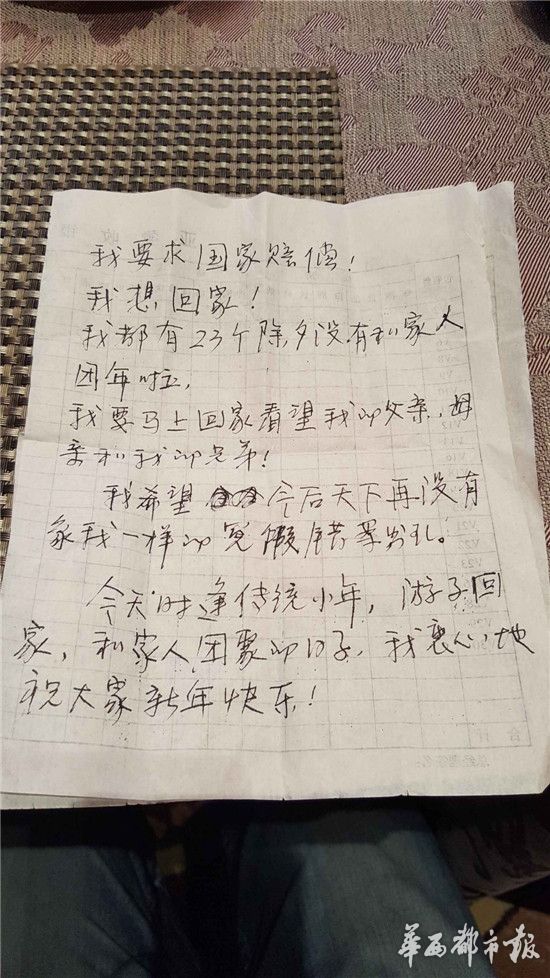 我要求国家赔偿!
我想回家!
我都有23个除夕没有和家人
团年啦,
我要马上回家看望我的父亲、母
亲和我的兄弟!
我希望 今后天下再没有
象我一样的冤假错案出现。
今天时逢传统小年,游子回
家,和家人团聚的日子,我衷心地
祝大家新年快乐!
合计
华西都市报